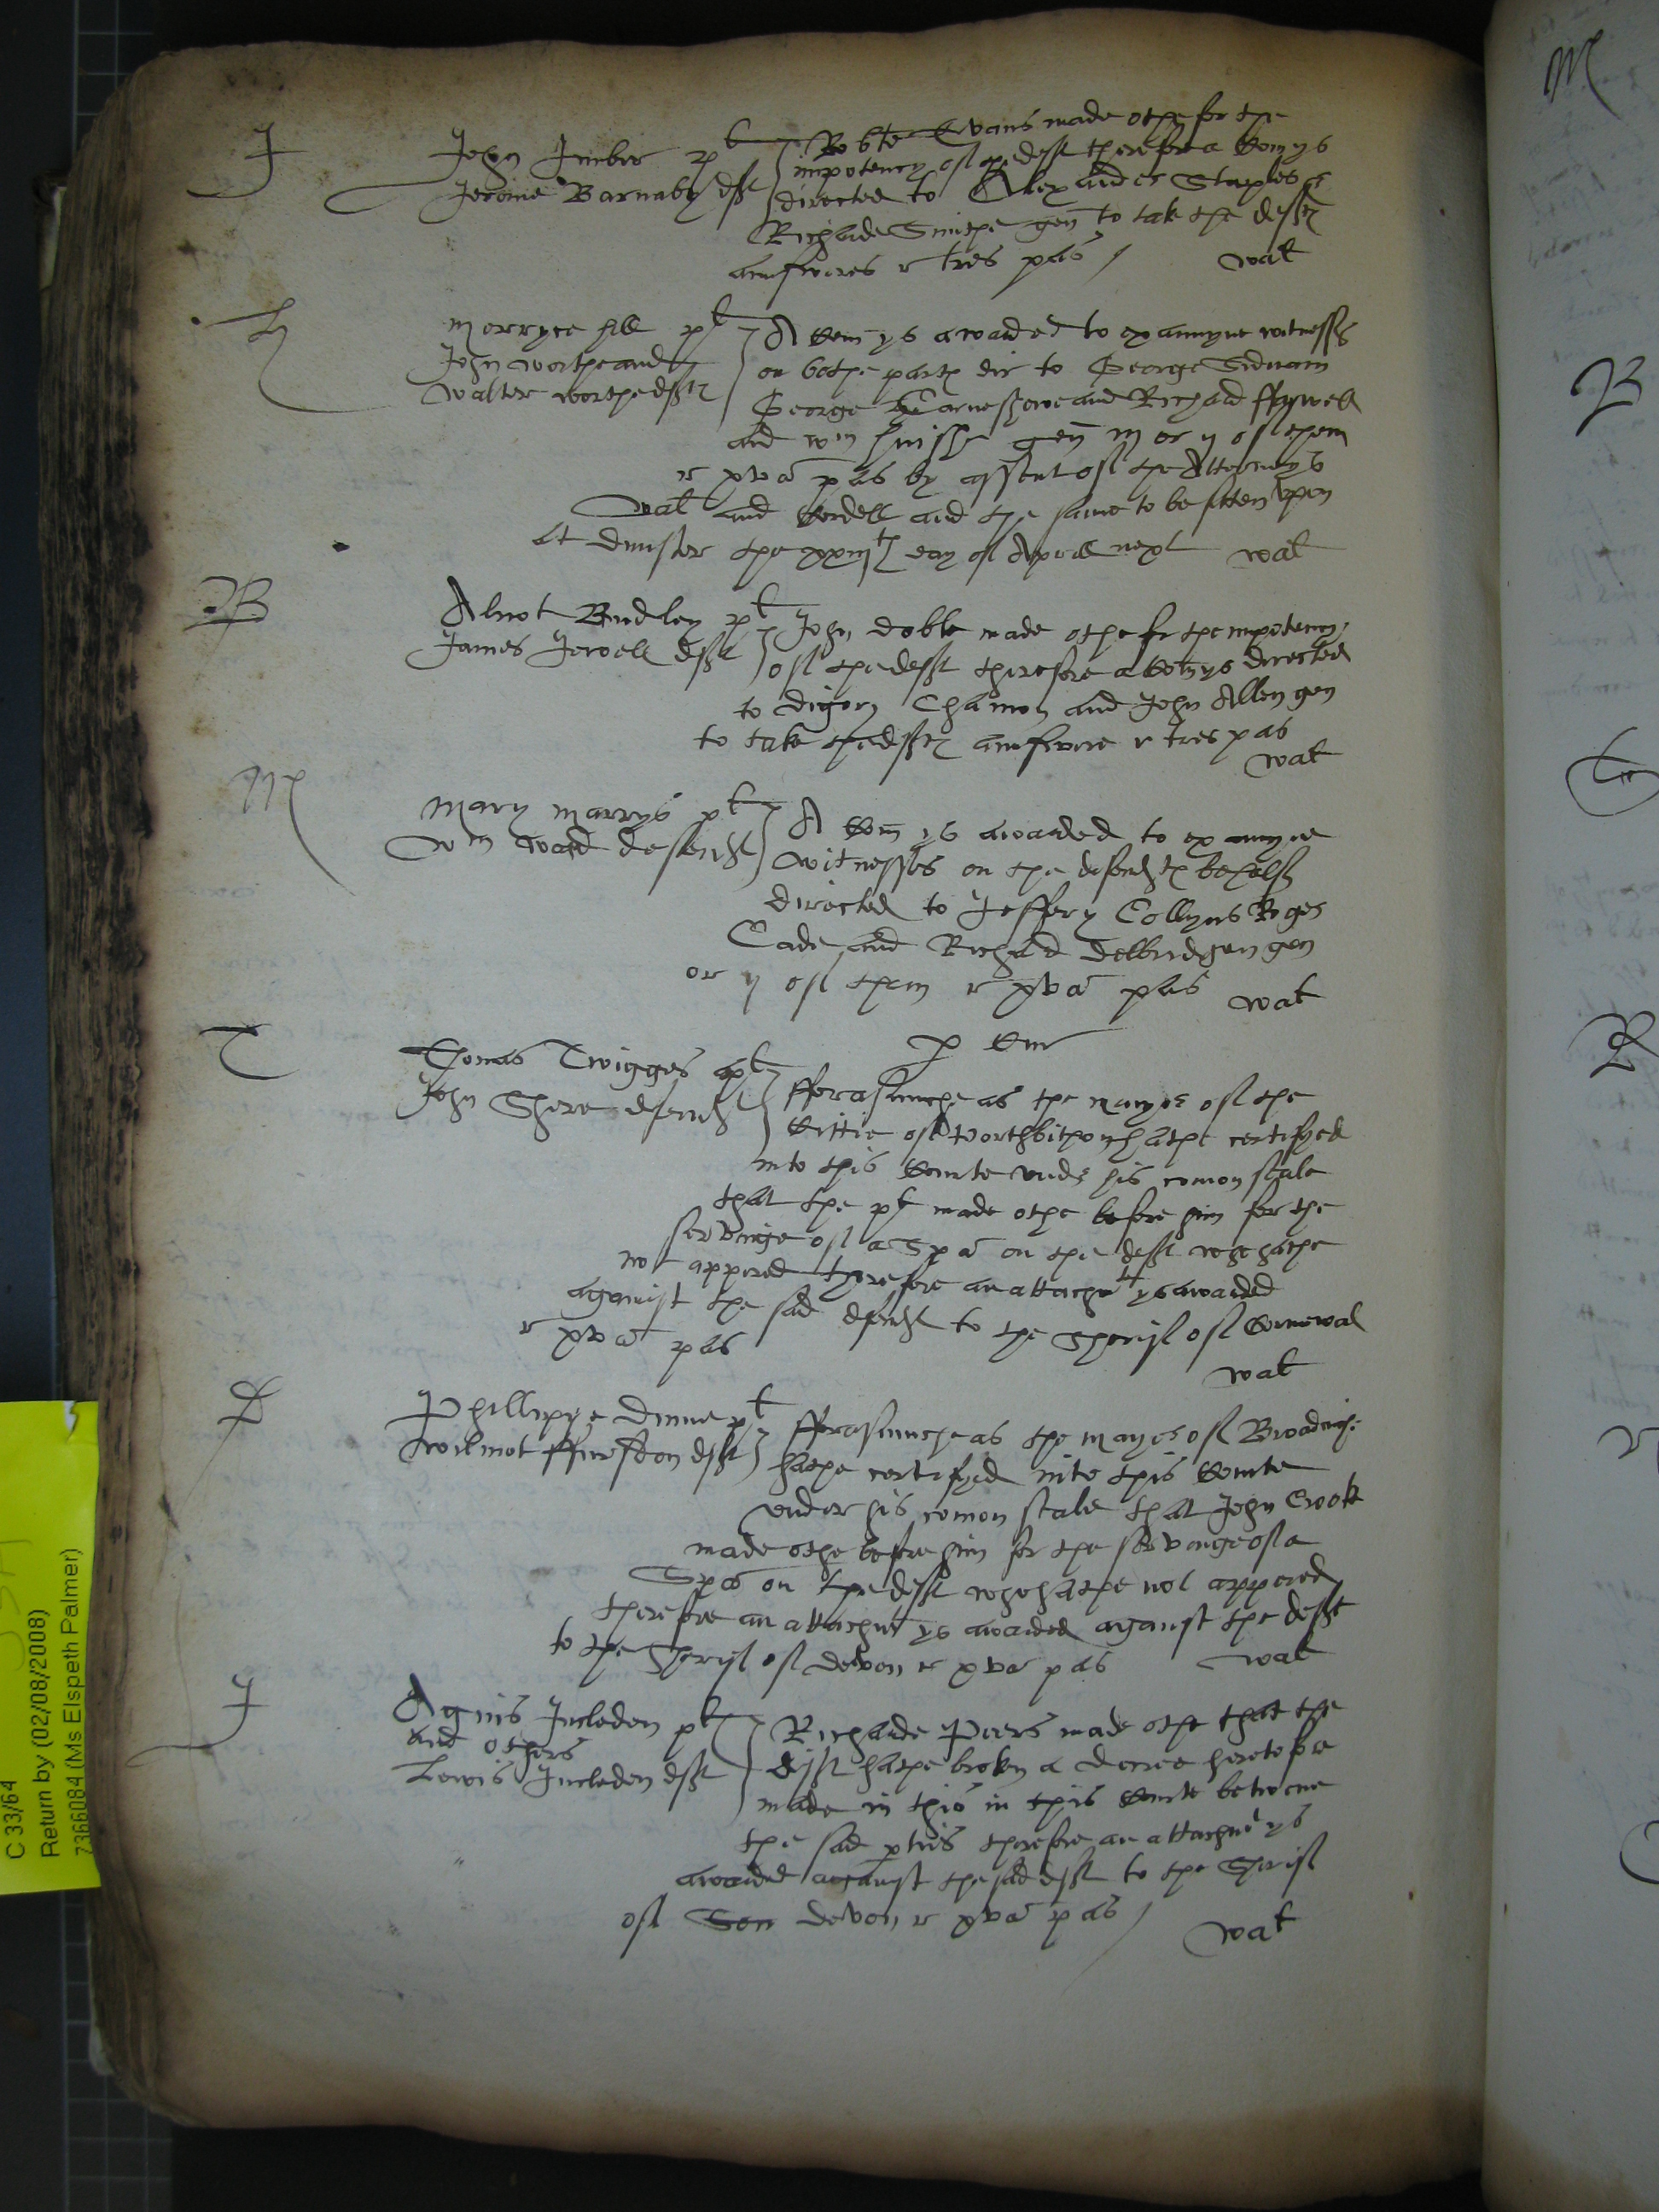 J
John Imber pt
Jerome Barnaby deft
Robte Evans made othe for the
impotency of the deft therefore a Com ys
directed to Alexander Staples &
Richarde Smithe gen to take the deftes
aunsweres r tres pas /
wat
H
Morryce Hill pt
John Worthe and
Walter Worthe deftes
A Com ys awarded to examyne witnesses
on bothe partes dir to George Sidnam
George and Richard
and Wm gen iij or ij of them
r xva pas by assent of the Attorneys
wat and Cordell and the same to be sitten upon
at Dunster the day of Aprill next wat
B
Alnot Budley pt
James Jewell deft
John Doble made othe for the impotency
of the deft therefore a Com ys directed
to Digory Chamon and John Allen gen
to take the deftes aunswere r tres pas
wat
M
Mary Marrys pt
Wm Ward defendt
A Com ys awarded to examyne
witnesses on the defendtes behalf
directed to Jeffery Collyns Roger
Cade and Richard gen
or ij of them r xva pas wat
p Cur
T
Thomas Twigges pt
John Shere defendt
fforasmuche as the mayor of the
Cittie of hathe certifyed
into this Courte under his comon seale
that the pt made othe before him for the
servinge of a Spa on the deft who hathe
not appered therefore an attachmt ys awarded
against the sad defendt to the Sherif of Cornewal
r xva pas
wat
D
Phillippe Dinne pt
Wilmot ffursdon deft
fforasmuche as the mayor of
hathe certifyed into this Courte
under his comon seale that John Crooke
made othe before him for the servinge of a
Spa on the deft who hathe not appered
therefore an attachmt ys awarded against the deft
to the Sherif of Devon r xva pas wat
J
Agnis Incleden pt
and others
Lewis Incleden deft
Richarde Peers made othe that the
deft hathe broken a decree heretofore
made in this in this Courte betwene
the sad pties therefore an attachmt ys
awarded against the sad deft to the Sherif
of Som Devon r xva pas /
wat
M
B
C 33/64
Return by (02/08/2008)
7366084 (Ms Elspeth Palmer)